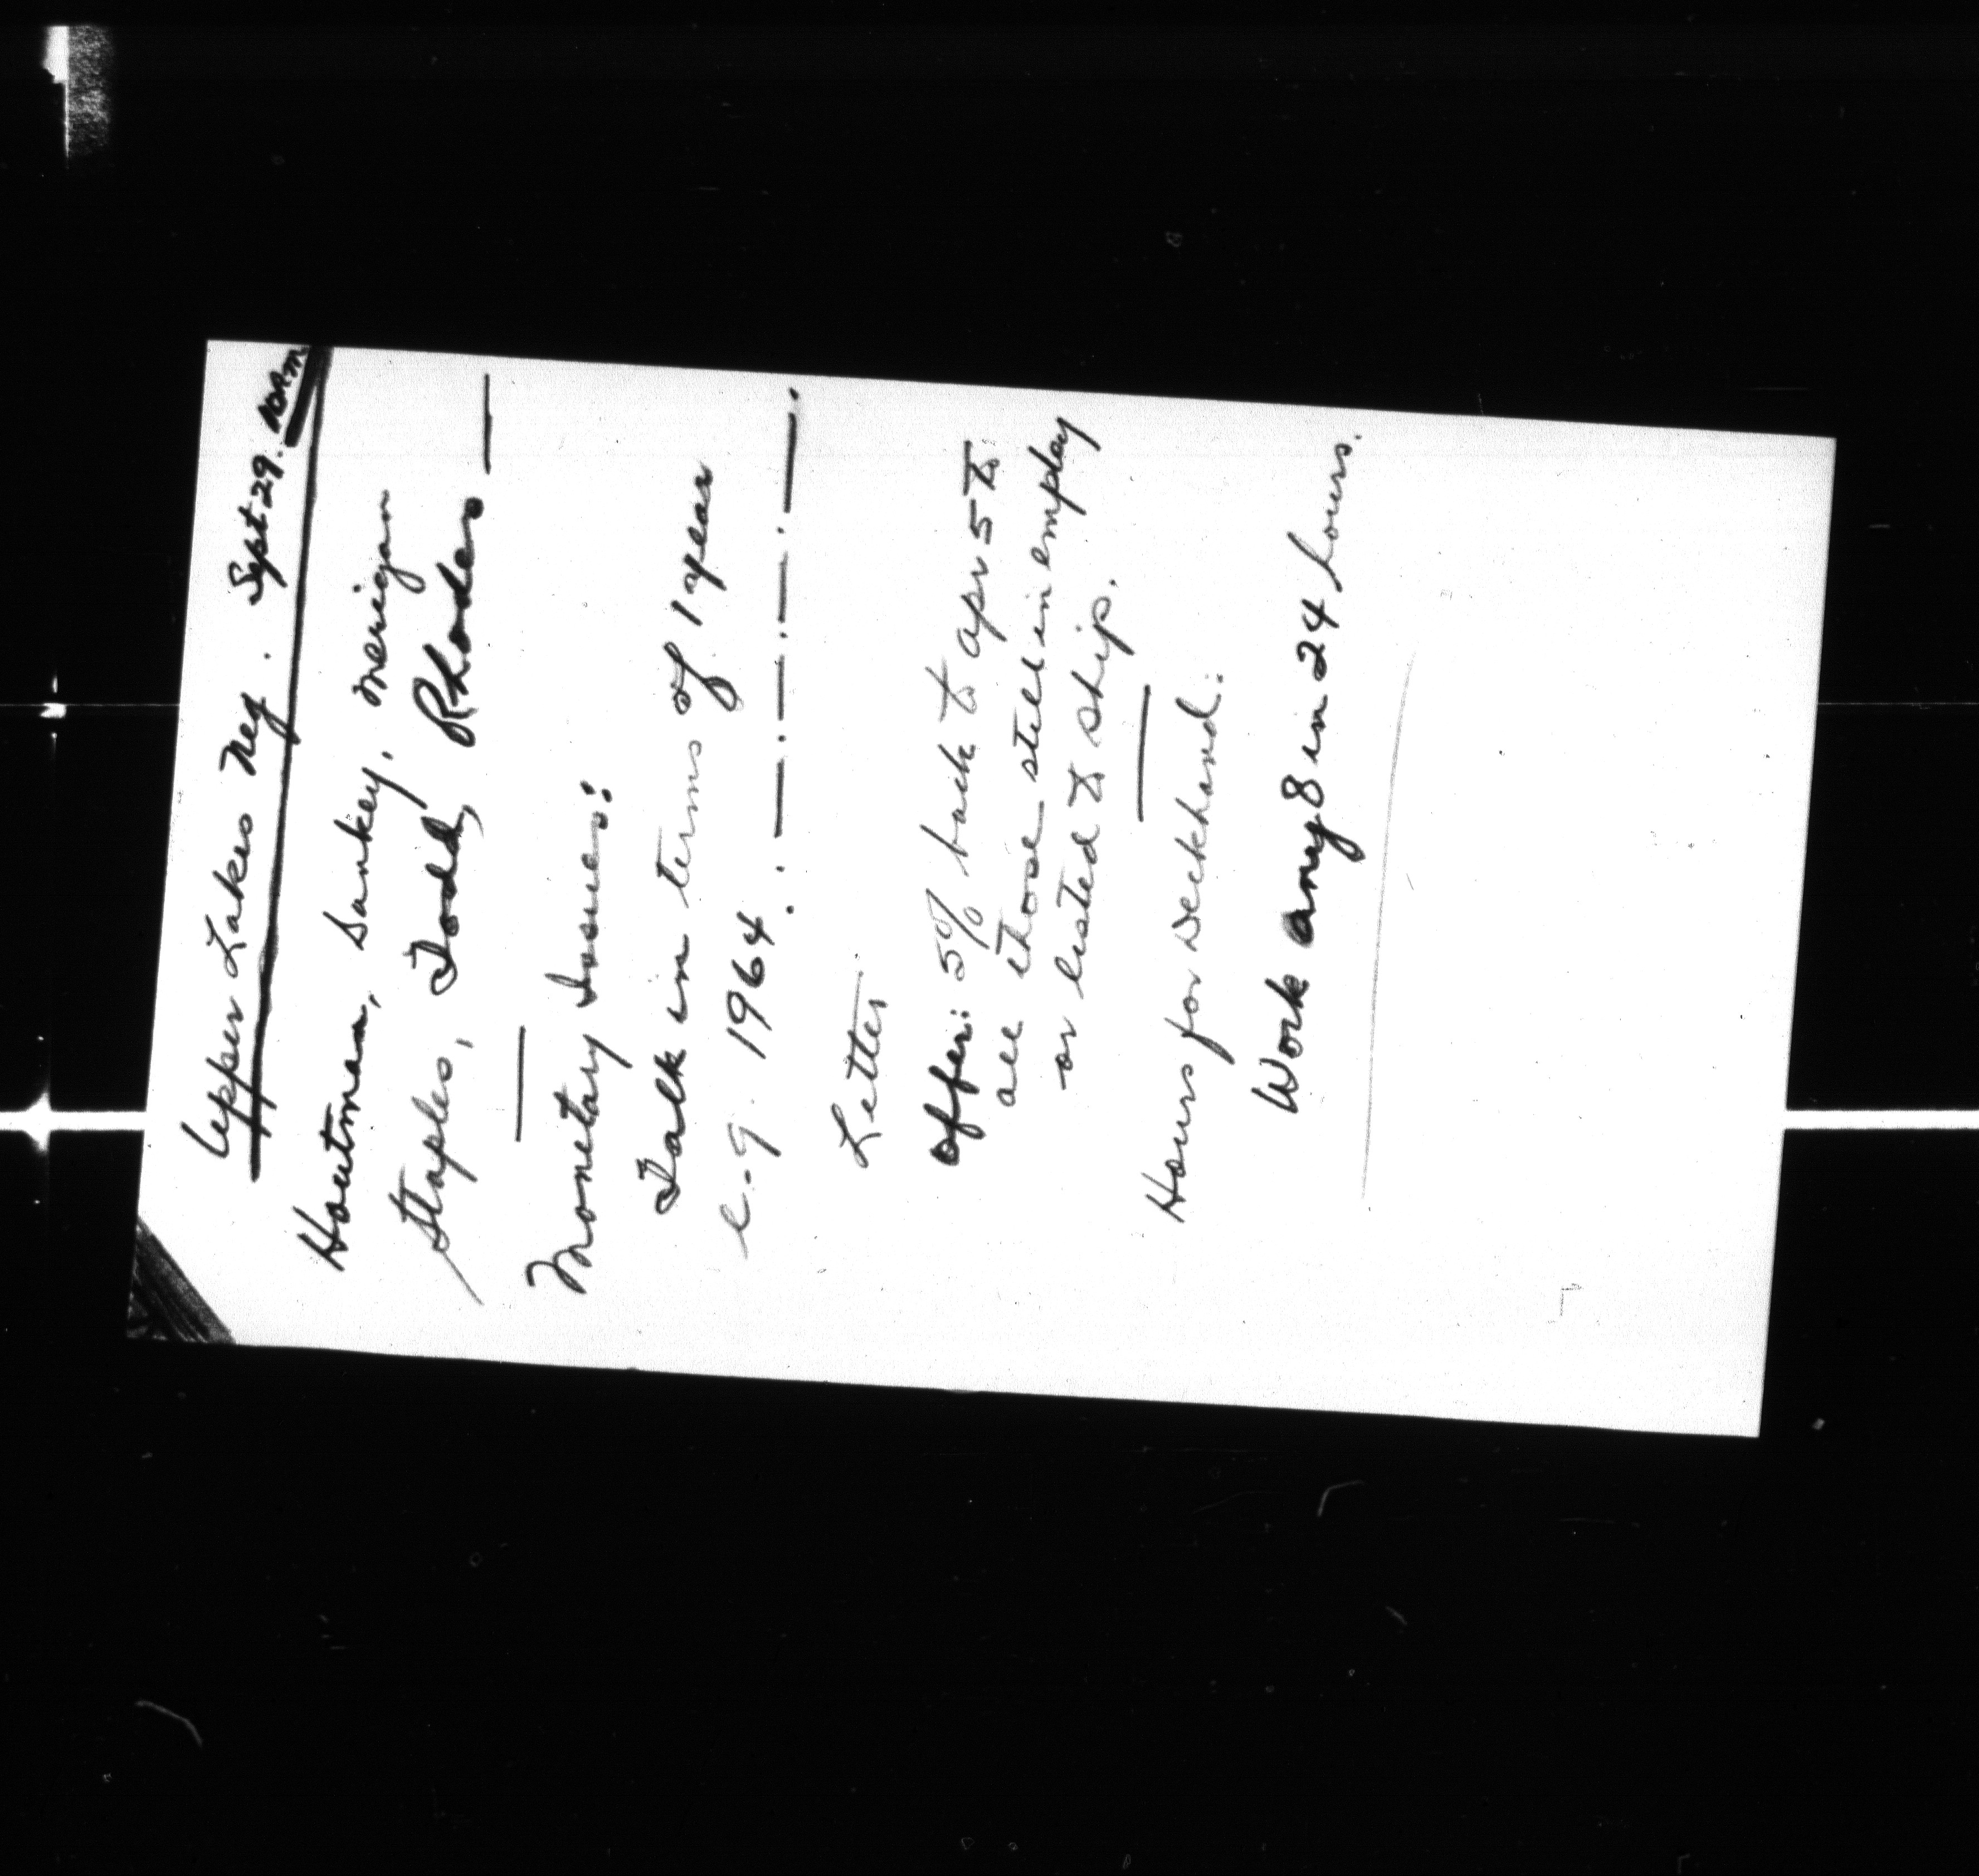 Upper Lakes Neg. Sept 29. 10AM
Houtman, Sankey, Merigan
Staples, Todd, Rhodes —
—
Monetary Issues:
Talk in terms of 1 year
e.g. 1964
Letter
Offer: 5% back to Apr 5 to
all those still in employ
or listed to ship.
Hours for Deckhand:
Work any 8 in 24 hours.